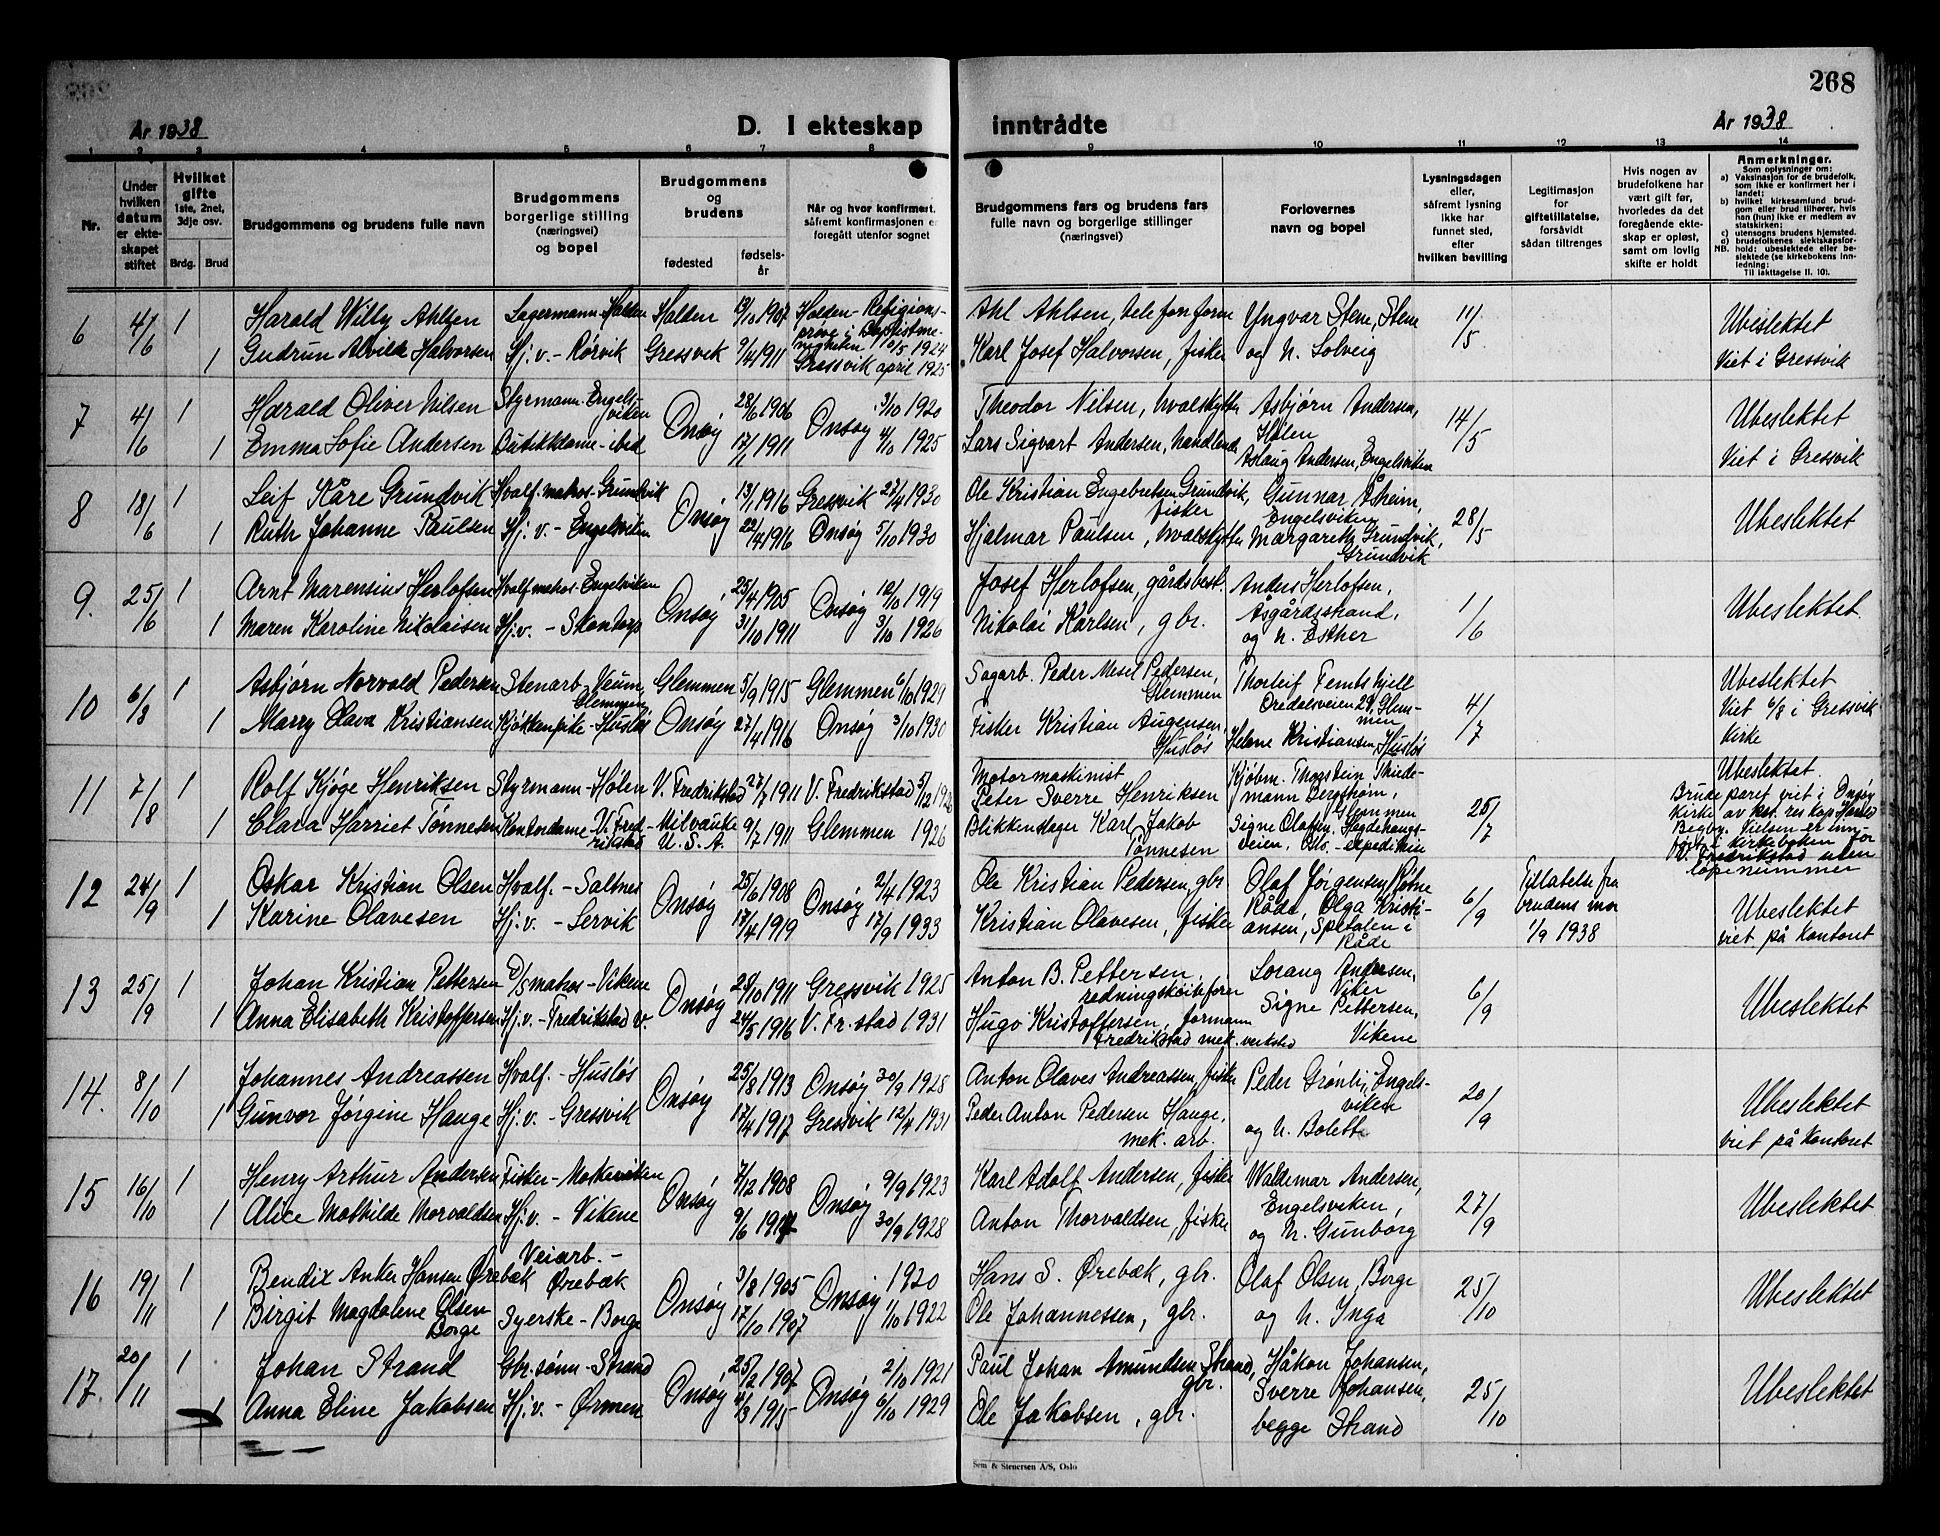 268
År 1938
D. I ekteskap inntrådte
År 1938
1 2 3 4 5 6 7 8 9 10 11 12 13 14
Nr.
Under hvilken datum er ekteskapet stiftet
Hvilket gifte 1ste, 2net, 3dje osv.
Brdg. Brud
Brudgommens og brudens fulle navn
Brudgommens borgerlige stilling (næringsvei) og bopel
Brudgommens og brudens
fødested
fødselsår
Når og hvor konfirmert, såfremt konfirmasjonen er foregått utenfor sognet
Brudgommens fars og brudens fars fulle navn og borgerlige stillinger (næringsvei)
Forlovernes navn og bopel
Lysningsdagen eller, såfremt lysning ikke har funnet sted, efter hvilken bevilling
Legitimasjon for giftetillatelse, forsåvidt sådan tiltrenges
Hvis nogen av brudefolkene har vært gift før, hvorledes da det foregående ekteskap er opløst, samt om lovlig skifte er holdt
Anmerkninger.
Som oplysninger om:
a) Vaksinasjon for de brudefolk, som ikke er konfirmert her i landet;
b) hvilket kirkesamfund brudgom eller brud tilhører, hvis han (hun) ikke er medlem av statskirken;
c) utensogns brudens hjemsted.
d) brudefolkenes slektskapsforhold: ubeslektede eller beslektede (se kirkebokens innledning:
NB.
Til iakttagelse II. 10).
6 4/6 1 Harald Willy Ahlsen Lagermann-Halden Halden 13/10 1907 Halden-Religionsprøve i Baptistmenigheten 10/5 1924 Ahl Ahlsen, telefonform Yngvar Stene, Stene 11/5 Ubeslektet
1 Gudrun Alvilde Halvorsen Hj.v.-Rørvik Gressvik 9/4 1911 Gressvik april 1925 Karl Josef Halvorsen, fisker og h. Solveig Viet i Gressvik
7 4/6 1 Harald Oliver Nilsen Styrmann-Engelsviken Onsøy 28/6 1906 Onsøy 3/10 1920 Theodor Nilsen, hvalskytte Asbjørn Andersen, Hølen 14/5 Ubeslektet
1 Emma Sofie Andersen Butikkdame-ibid 17/11 1911 4/10 1925 Lars Sigvart Andersen, handlende Aslaug Andersen, Engelsviken Viet i Gressvik
8 18/6 1 Leif Kåre Grundvik Hvalf.matros-Grundvik Onsøy 13/1 1916 Gressvik 27/4 1930 Ole Kristian Engebretsen Grundvik, fisker Gunnar Åsheim, Engelsviken 28/5 Ubeslektet
1 Ruth Johanne Paulsen Hj.v.-Engelsviken 22/4 1916 Onsøy 5/10 1930 Hjalmar Paulsen, hvalskytte Margareth Grundvik, Grundvik
9. 25/6 1 Arnt Marensius Herlofsen Hvalfmatros-Engelsviken Onsøy 25/4 1905 Onsøy 12/10 1919 Josef Herlofsen, gårdsbest. Anders Herlofsen, Åsgårdsstrand, 1/6 Ubeslektet.
1 Maren Karoline Nikolaisen Hj.v.-Skontorp 31/10 1911 3/10 1926 Nikolai Karlsen, gbr. og h. Esther
10 6/8 1 Asbjørn Norvald Pedersen Stenarb-Veum, Glemmen Glemmen 5/9 1915 Glemmen 6/10 1929 Sagarb. Peder Mesel Pedersen, Glemmen Thorleif Femtehjell Oredalsveien 29, Glemmen 4/7 Ubeslektet
1 Marry Olava Kristiansen Kjøkkenpike-Husløs Onsøy 27/4 1916 Onsøy 3/10 1930 Fisker Kristian Augensen, Husløs Helene Kristiansen, Husløs Viet 6/8 i Gressvik Kirke
11 7/8 1 Rolf Kjøge Henriksen Styrmann-Hølen V. Fredrikstad 27/7 1911 V. Fredrikstad 5/12 1926 Motormaskinist Peter Sverre Henriksen Kjøbm. Thorstein Thiedemann Bergstrøm, Glemmen 25/7 Ubeslektet.
1 Clara Harriet Tønnesen Kontordame-V. Fredrikstad Milvauke U.S.A. 9/7 1911 Glemmen 1926 Blikkenslager Karl Jakob Tønnesen Signe Olafsby, Hagdehaugsveien, Oslo-expeditrise Brudeparet viet i Onsøy Kirke av kst. res kap Harald Begby. Vielsen er innført i kirkeboken for V. Fredrikstad uten løpenummer
12 24/9 1 Oskar Kristian Olsen Hvalf.-Saltnes Onsøy 25/6 1908 Onsøy 2/4 1923 Ole Kristian Pedersen, gbr Olaf Jørgensen, Råde, 6/9 Tillatelse fra brudens mor 1/9 1938 Ubeslektet
1 Karine Olavesen Hj.v.-Lervik 17/4 1919 17/9 1933 Kristian Olavesen, fisker Olga Kristiansen, Spetalen i Råde viet på Kontoret
13 25/9 1 Johan Kristian Pettersen D/S matros-Vikene Onsøy 28/10 1911 Gressvik 1925 Anton B. Pettersen, redningskøitefører Lorang Andersen, Viker 6/9 Ubeslektet
1 Anna Elisabeth Kristoffersen Hj.v.-Fredrikstad v. 24/5 1916 V. Fr.stad 1931 Hugo Kristoffersen, formann Fredrikstad mek. verksted Signe Pettersen, Vikene
14. 8/10 1 Johannes Andreassen Hvalf.-Husløs Onsøy 25/8 1913 Onsøy 30/9 1928 Anton Olaves Andreassen, fisker Peder Grønli, Engelsviken 20/9 Ubeslektet
1 Gunvor Jørgine Hauge Hj.v.-Gressvik 17/4 1917 Gressvik 12/4 1931 Peder Anton Pedersen Hauge, mek. arb. og h. Bolette viet på Kontoret
15 16/10 1 Henry Arthur Andersen Fisker-Moskeviken Onsøy 7/12 1908 Onsøy 9/9 1923 Karl Adolf Andersen, fisker Waldemar Andersen, Engelsviken, 27/9 Ubeslektet
1 Alice Mathilde Thorvaldsen Hj.v.-Vikene 9/6 1914 30/9 1928 Anton Thorvaldsen, fisker og h. Gunborg
16 19/11 1 Bendix Anker Hansen Ørebæk Veiarb.-Ørebæk Onsøy 3/8 1905 Onsøy 1920 Hans S. Ørebæk, gbr. Olaf Olsen, Borge 25/10 Ubeslektet
1 Birgit Magdalene Olsen Borge Syerske-Borge 17/10 1907 1/10 1922 Ole Johannessen, gbr. og h. Inga
17. 20/11 1 Johan Strand Gbr.sønn-Strand Onsøy 25/2 1907 Onsøy 2/10 1921 Paul Johan Amundsen Strand, gbr. Håkon Johansen, 25/10 Ubeslektet
1 Anna Eline Jakobsen Hj.v.-Ørmen 11/3 1915 6/10 1929 Ole Jakobsen, gbr. Sverre Johansen, begge Strand
Sem & Stenersen A/S, Oslo